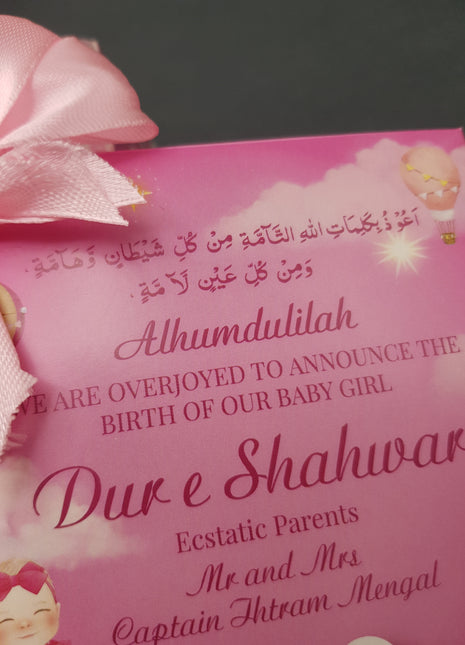 اَعُوْذُ بِكَلِمَاتِ اللهِ التَّآمَّةِ مِنْ كُلِّ شَيْطَانٍ وَّهَآمَّةٍ،
وَمِنْ كُلِّ عَيْنٍ لَآمَّةٍ،
Alhumdulilah
WE ARE OVERJOYED TO ANNOUNCE THE
BIRTH OF OUR BABY GIRL
Dur e Shahwar
Ecstatic Parents
Mr and Mrs
Captain Ihtram Mengal